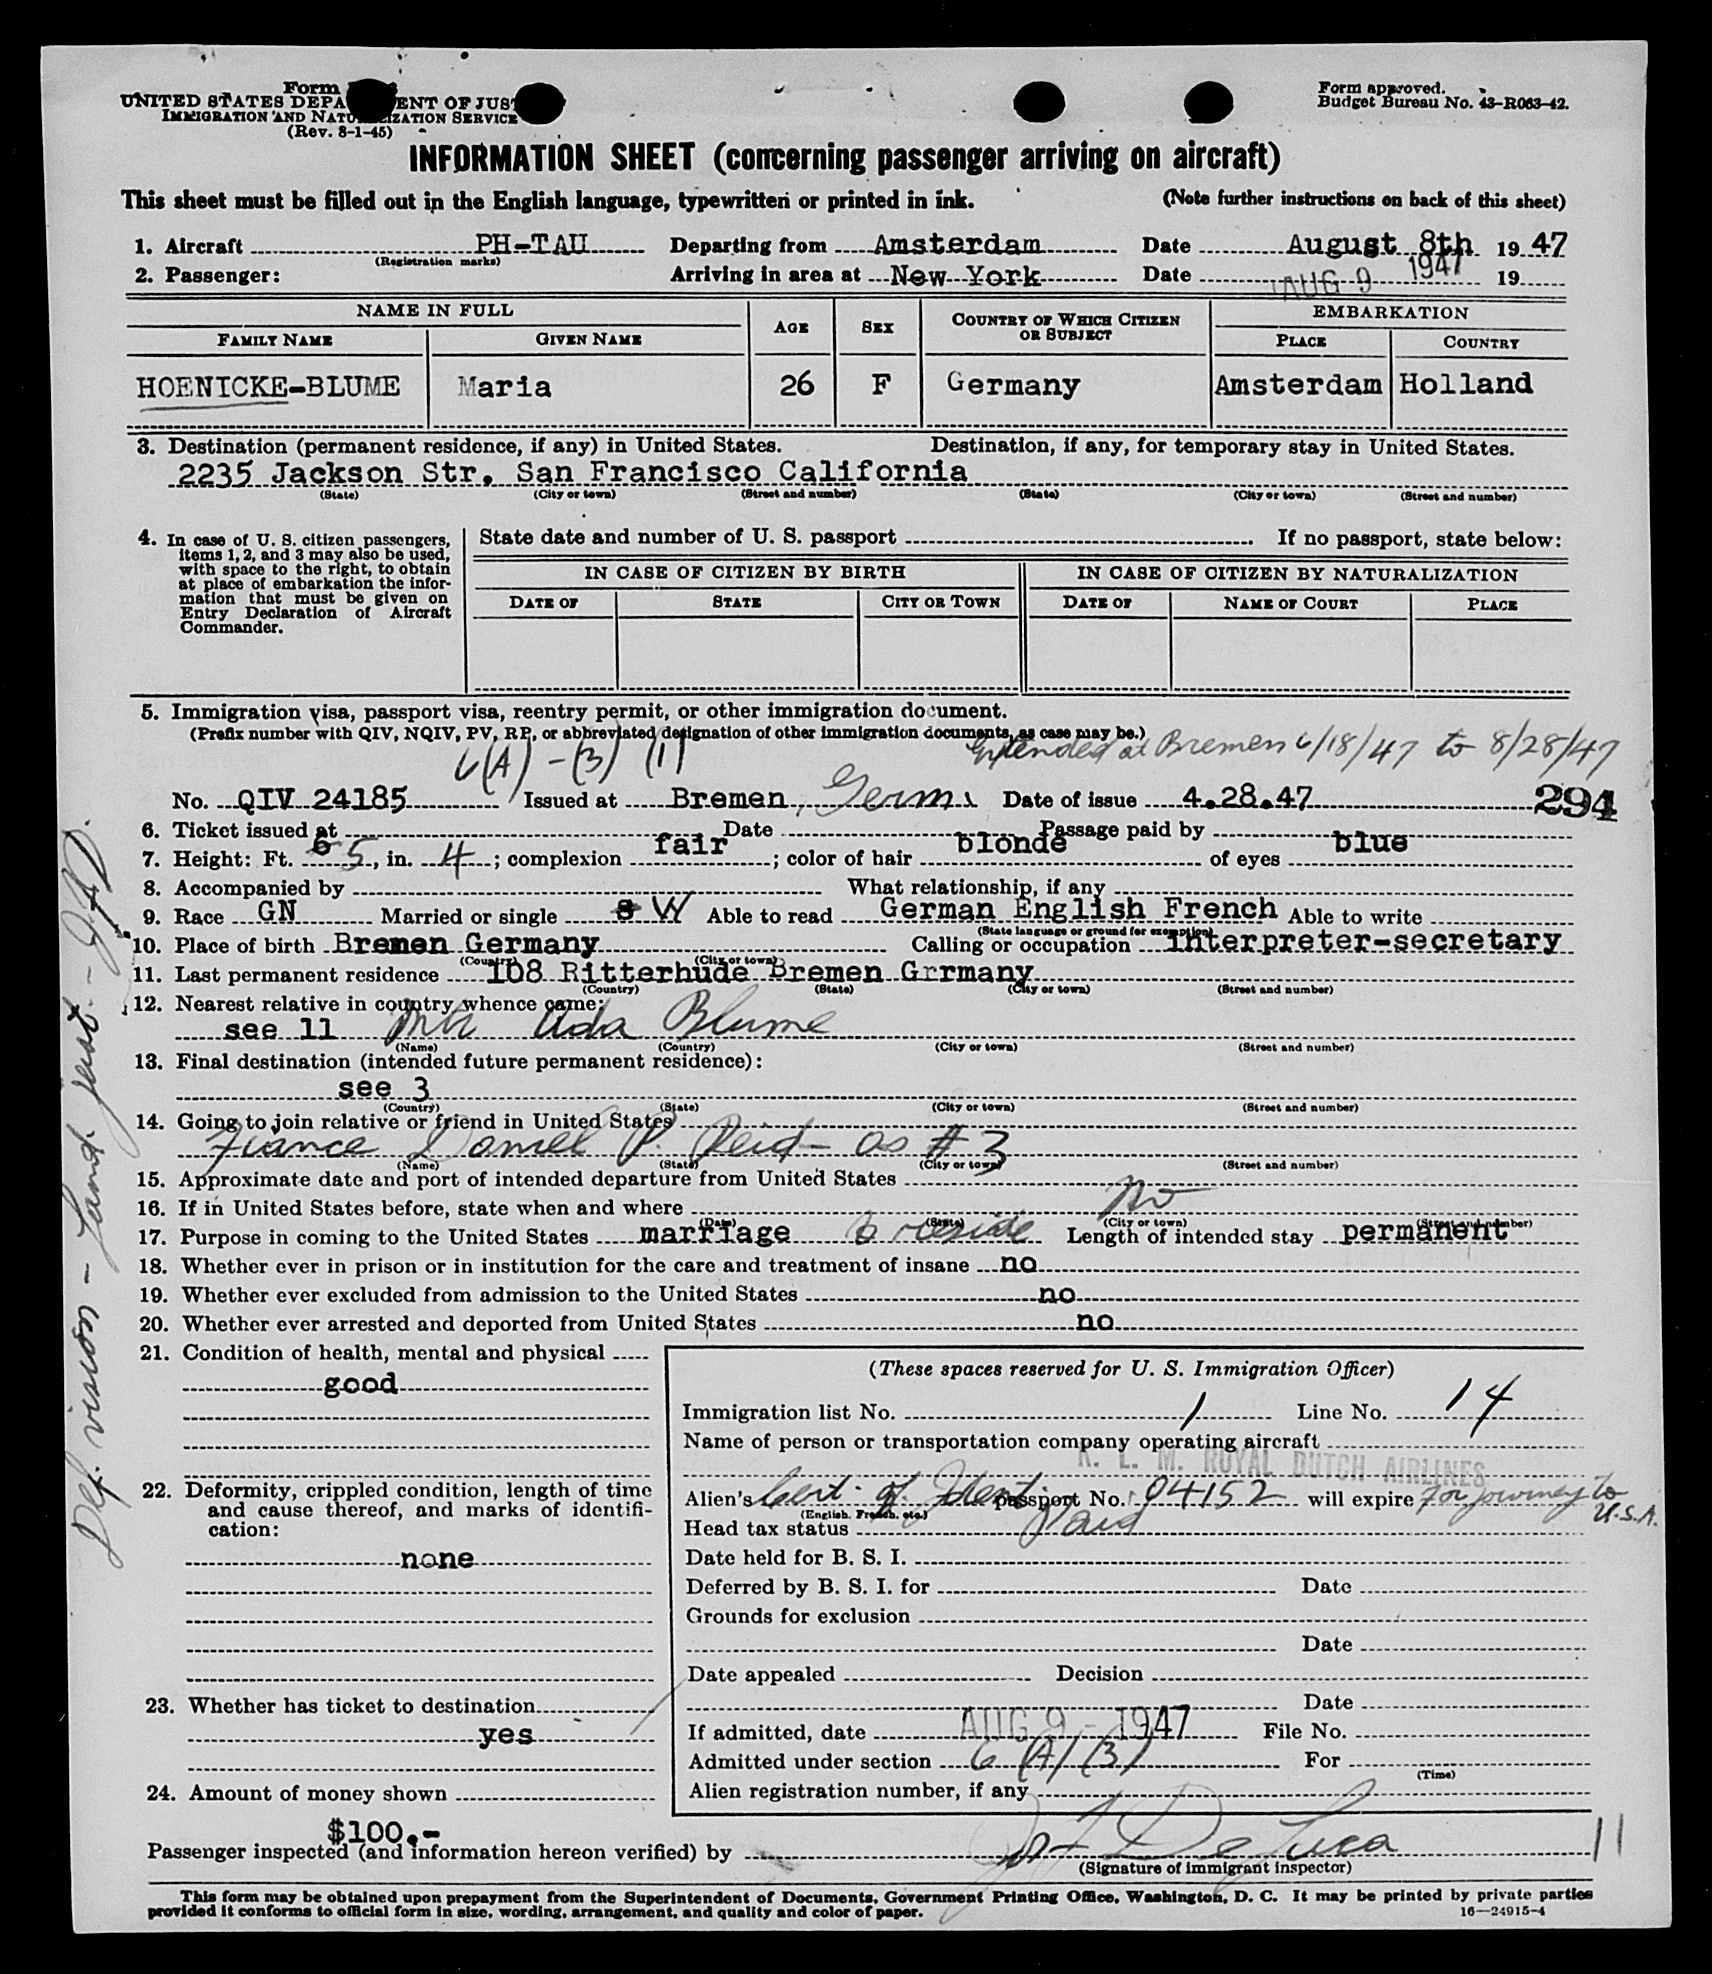 Form
UNITED STATES DEPA ENT OF JUST
IMMIGRATION AND NATU IZATION SERVICE
(Rev. 8-1-45)
Form approved.
Budget Bureau No. 43-R063-42.
INFORMATION SHEET (concerning passenger arriving on aircraft)
This sheet must be filled out in the English language, typewritten or printed in ink. (Note further instructions on back of this sheet)
1. Aircraft PH-TAU Departing from Amsterdam Date August 8th 1947
(Registration marks)
2. Passenger: Arriving in area at New York Date AUG 9 1947 19
NAME IN FULL
FAMILY NAME GIVEN NAME AGE SEX COUNTRY OF WHICH CITIZEN OR SUBJECT EMBARKATION
PLACE COUNTRY
HOENICKE-BLUME Maria 26 F Germany Amsterdam Holland
3. Destination (permanent residence, if any) in United States. Destination, if any, for temporary stay in United States.
2235 Jackson Str. San Francisco California
(State) (City or town) (Street and number) (State) (City or town) (Street and number)
4. In case of U. S. citizen passengers,
items 1, 2, and 3 may also be used,
with space to the right, to obtain
at place of embarkation the infor-
mation that must be given on
Entry Declaration of Aircraft
Commander.
State date and number of U. S. passport If no passport, state below:
IN CASE OF CITIZEN BY BIRTH IN CASE OF CITIZEN BY NATURALIZATION
DATE OF STATE CITY OR TOWN DATE OF NAME OF COURT PLACE
5. Immigration visa, passport visa, reentry permit, or other immigration document.
(Prefix number with QIV, NQIV, PV, RP, or abbreviated designation of other immigration documents, as case may be.)
6(A) - (3) (1) Extended at Bremen 6/18/47 to 8/28/47
No. QIV 24185 Issued at Bremen, Germ. Date of issue 4.28.47 294
6. Ticket issued at Date Passage paid by
7. Height: Ft. 6 5, in. 4; complexion fair; color of hair blonde of eyes blue
8. Accompanied by What relationship, if any
9. Race GN Married or single s W Able to read German English French Able to write
(State language or ground for exemption)
10. Place of birth Bremen Germany Calling or occupation interpreter-secretary
(Country) (City or town)
11. Last permanent residence 108 Ritterhude Bremen Grrmany
(Country) (State) (City or town) (Street and number)
12. Nearest relative in country whence came:
see 11 Ada Blume
(Name) (Country) (City or town) (Street and number)
13. Final destination (intended future permanent residence):
see 3
(Country) (State) (City or town) (Street and number)
14. Going to join relative or friend in United States
Fiance Daniel P. Reid - as # 3
(Name) (State) (City or town) (Street and number)
15. Approximate date and port of intended departure from United States
16. If in United States before, state when and where no
(Date) (State) (City or town) (Street and number)
17. Purpose in coming to the United States marriage to reside Length of intended stay permanent
18. Whether ever in prison or in institution for the care and treatment of insane no
19. Whether ever excluded from admission to the United States no
20. Whether ever arrested and deported from United States no
21. Condition of health, mental and physical
good
22. Deformity, crippled condition, length of time
and cause thereof, and marks of identifi-
cation:
none
23. Whether has ticket to destination
yes
24. Amount of money shown
$100.-
(These spaces reserved for U. S. Immigration Officer)
Immigration list No. 1 Line No. 14
Name of person or transportation company operating aircraft
K. L. M. ROYAL DUTCH AIRLINES
Alien's Cert. of Ident. passport No. 04152 will expire For journey to U.S.A.
(English, French, etc.)
Head tax status Paid
Date held for B. S. I.
Deferred by B. S. I. for Date
Grounds for exclusion
Date
Date appealed Decision
Date
If admitted, date AUG 9 - 1947 File No.
Admitted under section 6 (A) (3) For
(Time)
Alien registration number, if any
Passenger inspected (and information hereon verified) by De Luca 11
(Signature of immigrant inspector)
This form may be obtained upon prepayment from the Superintendent of Documents, Government Printing Office, Washington, D. C. It may be printed by private parties
provided it conforms to official form in size, wording, arrangement, and quality and color of paper.
16—24915-4
Def. vision -